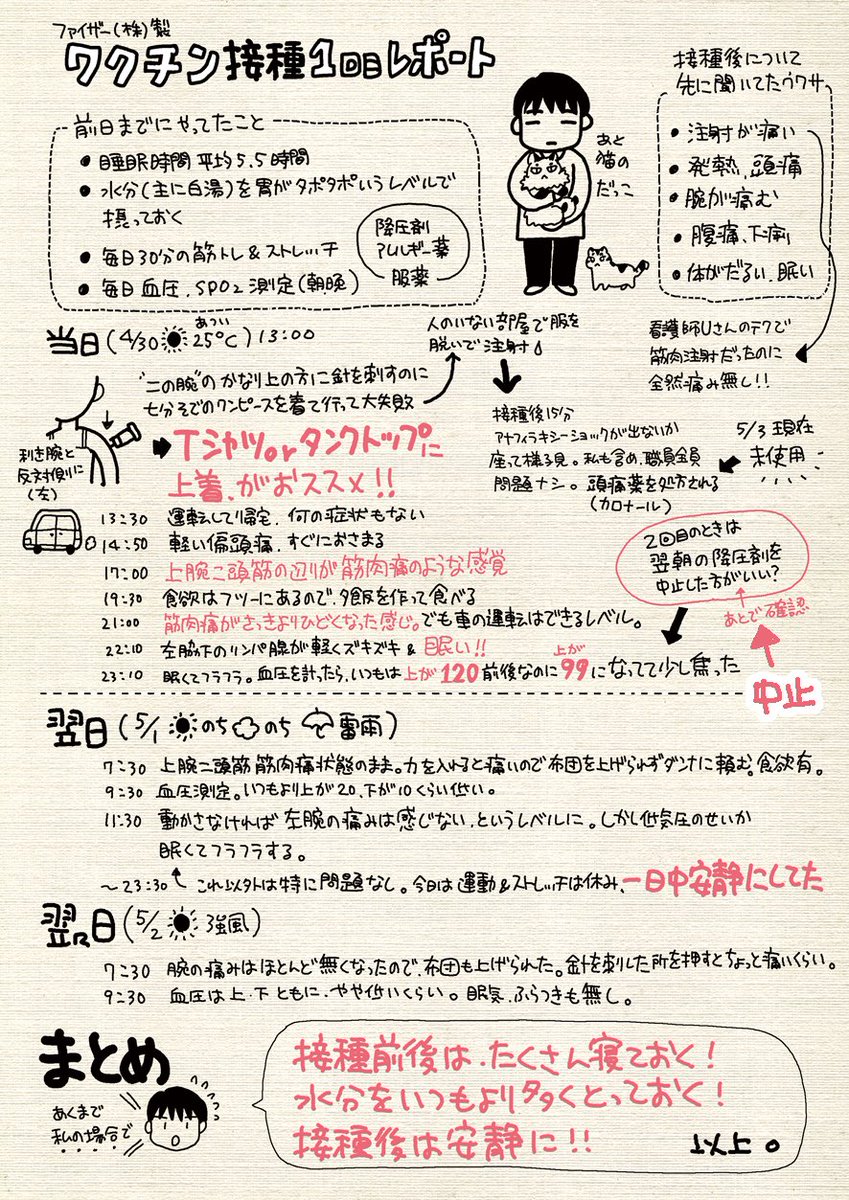 ファイザー(株)製
ワクチン接種1回目レポート
前日までにやってたこと
● 睡眠時間 平均5.5時間
● 水分(主に白湯)を胃がタポタポいうレベルで
摂っておく
● 毎日30分の筋トレ&ストレッチ
● 毎日血圧、SPO2測定(朝晩)
降圧剤
アレルギー薬
服薬
あと
猫の
だっこ
接種後について
先に聞いてたウワサ
● 注射が痛い
● 発熱、頭痛
● 腕が痛む
● 腹痛、下痢
● 体がだるい、眠い
看護師Uさんのテクで
筋肉注射だったのに
全然痛み無し!!
当日(4/30 あつい 25℃)13:00
人のいない部屋で服を
脱いで注射
"二の腕"のかなり上の方に針を刺すのに
七分そでのワンピースを着て行って大失敗
利き腕と
反対側に
(左)
Tシャツorタンクトップに
上着、がおススメ!!
接種後15分
アナフィラキシーショックが出ないか
座って様子見。私も含め、職員全員
問題ナシ。頭痛薬を処方される
(カロナール)
5/3現在
未使用
13:30 運転して帰宅、何の症状もない
14:50 軽い偏頭痛、すぐにおさまる
17:00 上腕二頭筋の辺りが筋肉痛のような感覚
19:30 食欲はフツーにあるので、夕飯を作って食べる
21:00 筋肉痛がさっきよりひどくなった感じ。でも車の運転はできるレベル。
22:10 左脇下のリンパ腺が軽くズキズキ & 眠い!!
23:10 眠くてフラフラ。血圧を計ったら、いつもは上が120前後なのに上が99になってて少し焦った
2回目のときは
翌朝の降圧剤を
中止した方がいい?
あとで確認
中止
翌日(5/1 のち のち 雷雨)
7:30 上腕二頭筋筋肉痛状態のまま。力を入れると痛いので布団を上げられずダンナに頼む。食欲有。
9:30 血圧測定。いつもより上が20、下が10くらい低い。
11:30 動かさなければ左腕の痛みは感じない、というレベルに。しかし低気圧のせいか
眠くてフラフラする。
～23:30 これ以外は特に問題なし。今日は運動&ストレッチは休み、一日中安静にしてた
翌々日(5/2 強風)
7:30 腕の痛みはほとんど無くなったので、布団も上げられた。針を刺した所を押すとちょっと痛いくらい。
9:30 血圧は上・下ともに、やや低いくらい。眠気、ふらつきも無し。
まとめ
あくまで
私の場合で
接種前後は、たくさん寝ておく!
水分をいつもより多くとっておく!
接種後は安静に!!
以上。